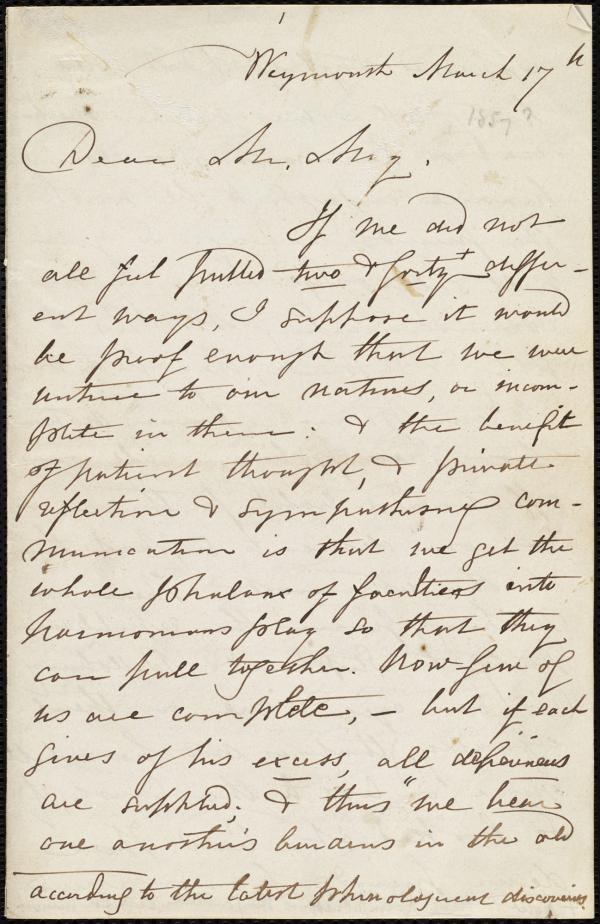 1
Weymouth March 17th
1857?
Dear Mr. May.
If we did not
all feel pulled two & forty+ differ-
ent ways, I suppose it would
be proof enough that we were
untrue to our natures, or incom-
plete in them: & the benefit
of patient thought, & private
reflection & sympathising com-
munication is that we get the
whole phalanx of faculties into
harmonious play so that they
can pull together. Now few of
us are complete, – but if each
gives of his excess, all deficiencies
are supplied; & thus "we bear
one another's burdens in the old
according to the latest phrenological discoveries